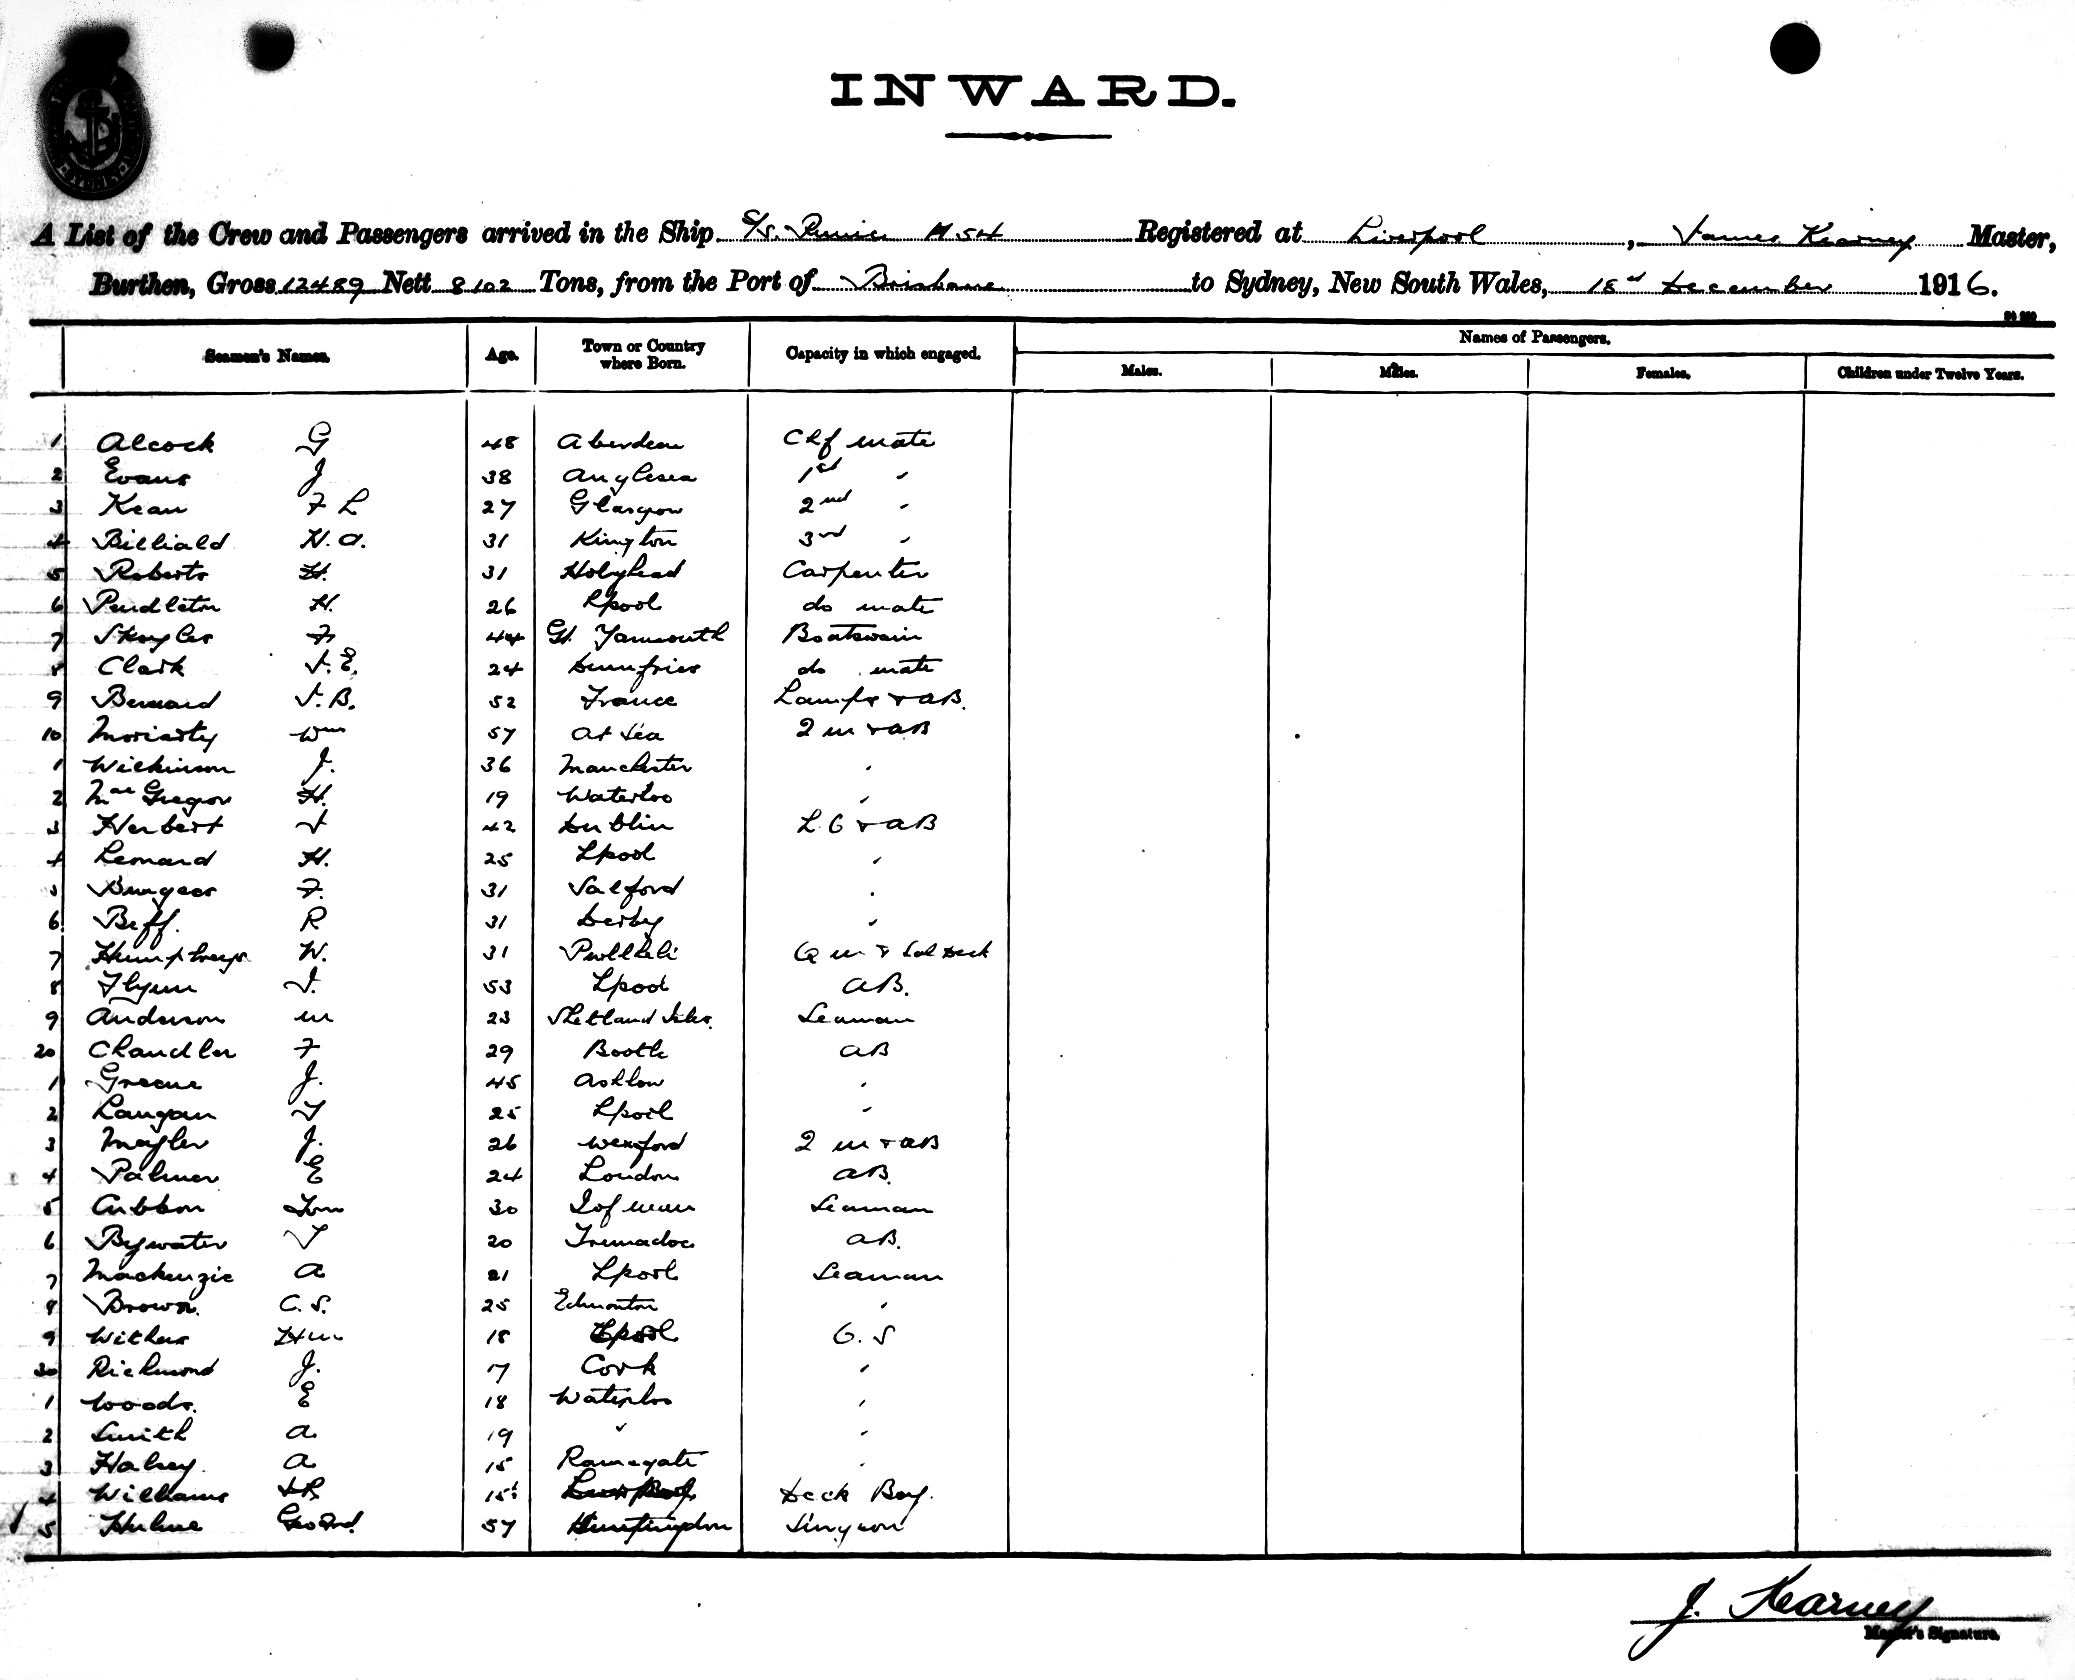 INWARD.
A List of the Crew and Passengers arrived in the Ship S/s. Runic A 54 Registered at Liverpool, James Kearney Master,
Burthen, Gross 12489 Nett 8102 Tons, from the Port of Brisbane to Sydney, New South Wales, 18th December 1916.
Names of Passengers.
Seamen's Names. Age. Town or Country where Born. Capacity in which engaged. Males. Males. Females. Children under Twelve Years.
1 Alcock G 48 Aberdeen Chf mate
2 Evans J 38 Anglesea 1st "
3 Kean F L 27 Glasgow 2nd "
4 H. A. 31 Kington 3rd "
5 Roberts H. 31 Holyhead Carpenter
6 Pendleton H. 26 Lpool do mate
7 F 44 Gt. Yarmouth Boatswain
8 Clark J. E. 24 Dumfries do mate
9 Bernard J. B. 52 France Lamps & AB.
10 Moriarty Wm 57 At Sea Q M & AB
1 Wilkinson J. 36 Manchester "
2 MacGregor H. 19 Waterloo "
3 Herbert J 42 Dublin L. O & AB
4 Leonard H. 25 Lpool "
5 Burgess F. 31 Salford "
6 Beff. R 31 Derby "
7 Humphreys W. 31 Pwllheli Q M & Deck
8 Flynn J. 53 Lpool AB.
9 Anderson M 23 Shetland Isles. Seaman
20 Chandler F 29 Bootle AB
1 Greene J. 45 "
2 Langan T 25 Lpool "
3 J. 26 Wexford Q M & AB
4 Palmer E 24 London AB.
5 Cubbon Tom 30 I of Man Seaman
6 Bywater T 20 Tremadoc AB.
7 Mackenzie A 21 Lpool Seaman
8 Brown. C. S. 25 Edmonton "
9 Withers 18 Lpool O. S
30 Richmond J. 17 Cork "
1 Woods. E 18 Waterloo "
2 Smith A 19 " "
3 Halsey. A 15 Ramsgate "
4 Williams 15 Deck Boy.
5 Hulme 57 Huntingdon Surgeon
J. Kearney
Master's Signature.